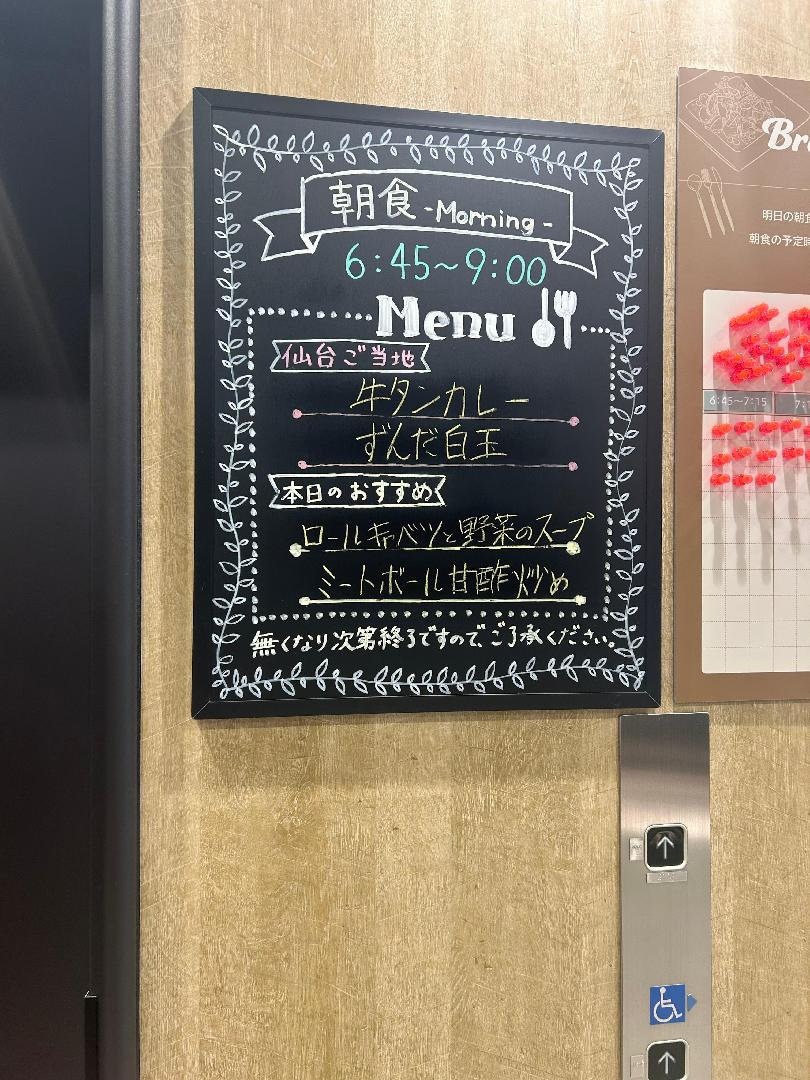 朝食 -Morning-
6:45~9:00
Menu
仙台ご当地
牛タンカレー
ずんだ白玉
本日のおすすめ
ロールキャベツと野菜のスープ
ミートボール甘酢炒め
無くなり次第終了ですので、ご了承ください。
Br
明日の朝食
朝食の予定時
6:45~7:15